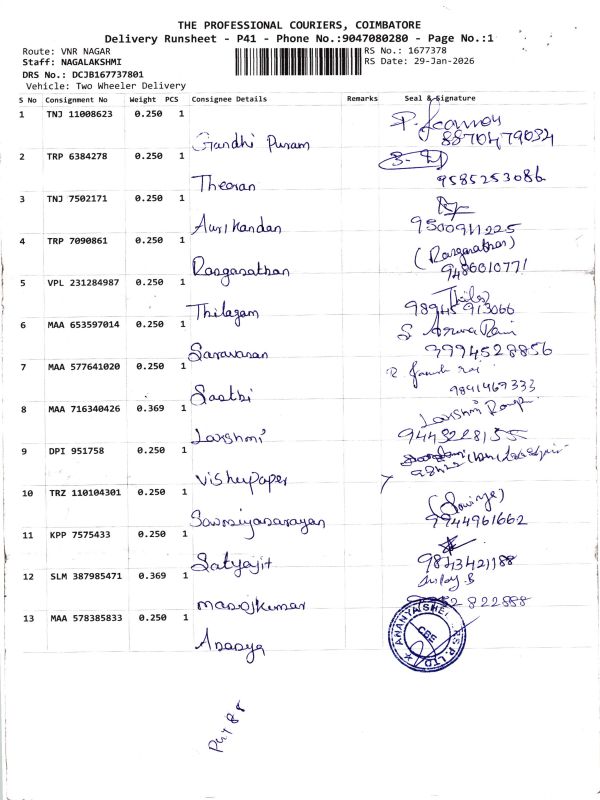 THE PROFESSIONAL COURIERS, COIMBATORE
Delivery Runsheet - P41 - Phone No.:9047080280 - Page No.:1
Route: VNR NAGAR
Staff: NAGALAKSHMI
DRS No.: DCJB167737801
Vehicle: Two Wheeler Delivery
RS No.: 1677378
RS Date: 29-Jan-2026
S No Consignment No Weight PCS Consignee Details Remarks Seal & Signature
1 TNJ 11008623 0.250 1 Gandhi Puram
8870479034
2 TRP 6384278 0.250 1 Theeran
9585253086
3 TNJ 7502171 0.250 1 Aurikandan
9500911225
4 TRP 7090861 0.250 1 Rangarathan
(Rangarathan)
9486010771
5 VPL 231284987 0.250 1 Thilagam
98945913066
6 MAA 653597014 0.250 1 Saravanan
9994528856
7 MAA 577641020 0.250 1 Saathi
9891469333
8 MAA 716340426 0.369 1 Lakshmi
Lakshmi
9443228155
9 DPI 951758 0.250 1 Vishupaper
10 TRZ 110104301 0.250 1 Sooriyanarayan
9944961662
11 KPP 7575433 0.250 1 Satyajit
9843421188
12 SLM 387985471 0.369 1 Manojkumar
822888
13 MAA 578385833 0.250 1 Ananya
CBE